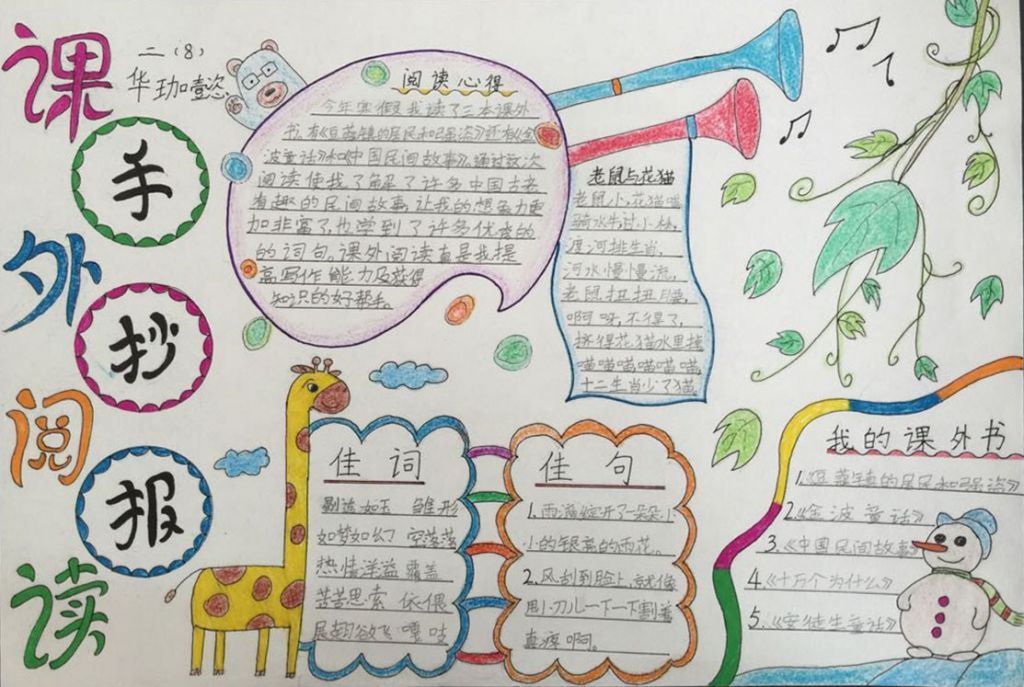 课
外
阅
读
手
抄
报
二（8）
华珈懿
阅读心得
今年寒假我读了三本课外
书.有《豆蔻镇的居民和强盗》还有《金
波童话》和《中国民间故事》.通过这次
阅读使我了解了许多中国古老
有趣的民间故事.让我的想象力更
加非富了,也学到了许多优秀的
的词句。课外阅读真是我提
高写作能力及获得
知识的好帮手。
老鼠与花猫
老鼠小,花猫喵,
骑水牛过小桥,
渡河排生肖,
河水慢慢流,
老鼠扭扭腰,
啊呀,不得了,
挤得花猫水里掉
喵喵喵喵喵喵
十二生肖少了猫.
佳词
剔透如玉 雏形
如梦如幻 空落落
热情洋溢 覆盖
苦苦思索 依偎
展翅欲飞 嘎吱
佳句
1.雨滴绽开了朵朵小
小的银亮的雨花。
2.风刮到脸上,就像
用小刀儿一下一下割着
真疼啊。
我的课外书
1.《豆蔻镇的居民和强盗》
2.《金波童话》
3.《中国民间故事》
4.《十万个为什么》
5.《安徒生童话》